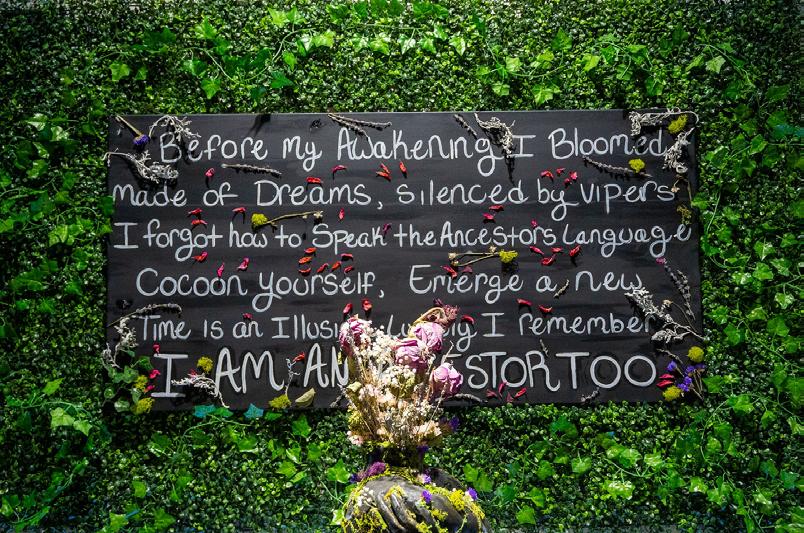 Before my Awakening I Bloomed
made of Dreams, silenced by vipers
I forgot how to Speak the Ancestors Language
Cocoon yourself, Emerge a new
Time is an Illusi I remember
I AM AN ESTOR TOO